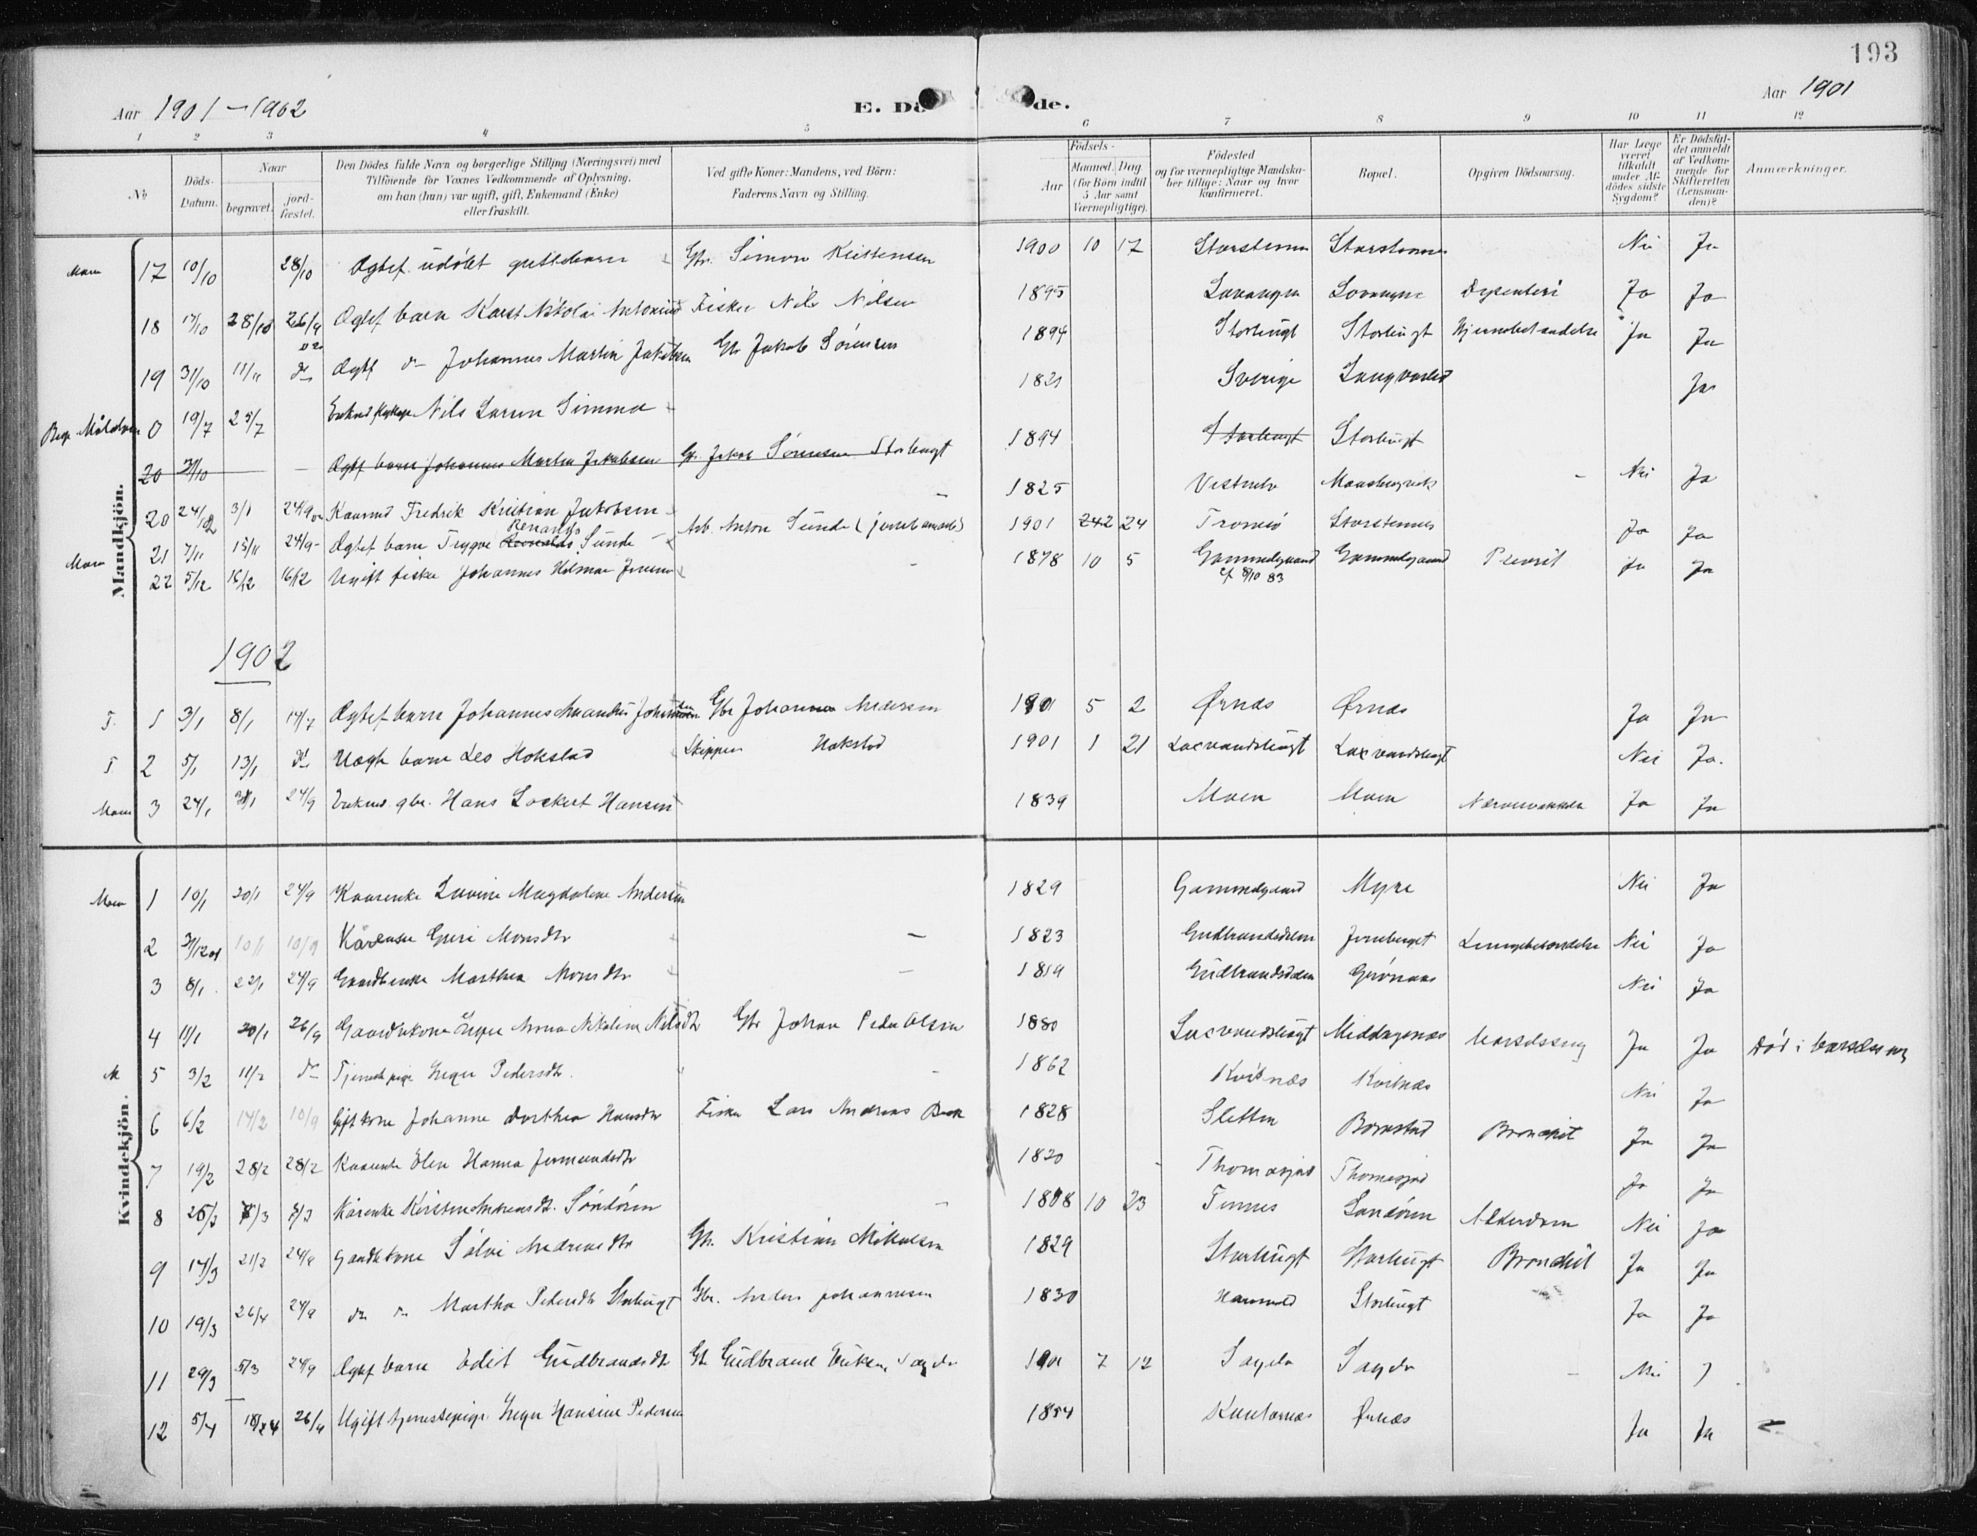 193
Aar 1901-1902
E. Dö de.
Aar 1901
1 2 3 4 5 6 7 8 9 10 11 12
No
Döds-Datum.
Naar
begravet.
jord-fæstet.
Den Dödes fulde Navn og borgerlige Stilling (Næringsvei) med
Tilföiende for Voxnes Vedkommende af Oplysning,
om han (hun) var ugift, gift, Enkemand (Enke)
eller fraskilt.
Ved gifte Koner: Mandens, ved Börn:
Faderens Navn og Stilling.
Födsels-
Aar
Maaned. Dag.
(for Börn indtil
5 Aar samt
Værnepligtige).
Födested
og for værnepligtige Mandska-
ber tillige: Naar og hvor
konfirmeret.
Bopæl.
Opgiven Dödsaarsag.
Har Læge
været
tilkaldt
under Af-
dödes sidste
Sygdom?
Er Dödsfal-
det anmeldt
af Vedkom-
mende for
Skifteretten
(Lensman-
den)?
Anmærkninger.
Mandkjön.
17 10/10 28/10 Ægtef. udöbt guttebarn Gbr. Simon Kristensen 1900 10 17 Storstennes Storstennes Nei Ja
18 17/10 28/10 26/9 02 Ægtef barn Karst Nikolai Antonius Fisker Nils Nilsen 1895 Lavangen Lavangen Dysenteri Ja Ja
19 31/10 11/11 do Ægtf do Johannes Martin Jakobsen Gbr Jakob Sörensen 1894 Storbugt Storbugt Hjernebetændelse Ja Ja
Målselven 0 19/7 25/7 Nils Larsen Simma 1821 Sverige Ja
20 31/10 Ægtf barn Johannes Martin Jakobsen Gbr. Jakob Sörensen Storbugt 1894 Storbugt Storbugt
20 24/12 3/1 24/9 02 Kaarmd Fredrik Kristian Jakobsen 1825 Nei Ja
21 7/11 15/11 24/9 Ægtef barn Trygve Sunde Arb. Anton Sunde 1901 24 Tromsö Storstennes Ja Ja
22 5/12 16/12 16/12 Ugift fisker Johannes Hilmar Jensen 1878 10 5 Gammelgaard Gammelgaard Plevrit Ja Ja
cf 8/10 83
1902
T. 1 3/1 8/1 14/7 Ægtef barn Johannes Gbr Johan Andersen 1901 5 2 Ørnæs Ørnæs Ja Ja
T 2 5/1 13/1 do Uægte barn Leo Hokstad Skipper Hokstad 1901 1 21 Laxvandsbugt Laxvandsbugt Nei Ja.
Moen 3 24/1 31/1 24/9 Enkmd gbr. Hans Lockert Hansen 1839 Moen Moen Ja Ja
Kvindekjön.
Moen 1 10/1 20/1 24/9 Kaarenke Lavine Magdalene Andersen 1829 Gammelgaard Myre Nei Ja
2 31/12 01 10/1 10/9 Kårenke Guri Monsdtr 1823 Gudbrandsdalen Jernberget Lungebetændelse Nei Ja
3 8/1 22/1 24/9 Marthea Monsdtr 1819 Gudbrandsdalen Grönaas Nei Ja
4 11/1 20/1 26/9 Gaardbrkone Inger Anna Nikoline Nilsdtr Gbr Johan Peder Olsen 1880 Laxvandsbugt Middagsnæs barselseng Ja Ja Död i barselseng
M 5 3/2 11/2 do Tjenestepige Inger Pedersdtr. 1862 Kvitnæs Kvitnæs Nei Ja
6 6/2 14/2 10/9 Gift kone Johanne Dorthea Hansdtr Fisker Lars Andreas Beck 1828 Sletten Bornstad Bronchit Ja Ja
7 19/2 28/2 28/2 Kaarenke Elen Hanna Jermundsdtr 1820 Thomasjord Thomasjord Ja Ja
8 25/2 7/3 7/3 Kårenke Kirstine Andreasdt. Sandören 1818 10 23 Tennes Sandören Alderdom Nei Ja
9 14/3 21/3 24/9 Gaardbkone Sölvi Andreasdtr Gbr. Kristian Mikalsen 1829 Storbugt Storbugt Bronchit Ja Ja
10 19/3 26/4 24/9 do do Martha Pedersdtr Storbugt Gbr. Anders Johannesen 1830 Storbugt Ja Ja
11 29/3 5/3 24/9 Ægtf barn Edit Gudbrandsdtr Gbr Gudbrand Eriksen 1901 7 12 Sagelv Sagelv Nei J
12 5/4 18/4 26/9 Ugift tjenestepige Inger Hansine Pedersen 1854 Ørnæs Ja Ja